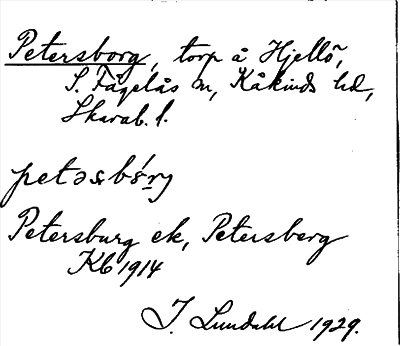 Petersborg, torp å Hjellö,
S. Fågelås sn, Kåkinds hd,
Skarab. l.
Petersburg ek, Petersberg
Kb 1914
I. Lundahl 1929.